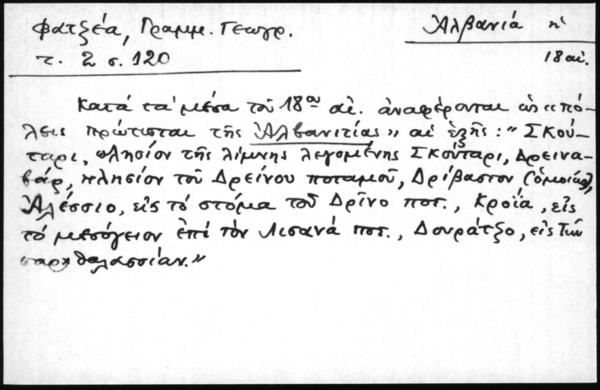 Φατζέα, Γραμμ. Γεωγρ.
τ. 2 σ. 120
Ἀλβανιά
18 αἰ.
Κατά τά μέσα τοῦ 18ου αἰ. ἀναφέρονται ὡς "πό-
λεις πρώτισται τῆς Ἀλβανιτίας" αἱ ἑξῆς: "Σκού-
ταρι, πλησίον τῆς λίμνης λεγομένης Σκούταρι, Δρεινα-
βάρ, πλησίον τοῦ Δρείνου ποταμοῦ, Δρίβαστον (ὁμοίως),
Ἀλέσσιο, εἰς τό στόμα τοῦ Δρῖνο ποτ., Κροία, εἰς
τό μεσόγειον ἐπί τόν Λισανά ποτ., Δουράτζο, εἰς τήν
παραθαλασσίαν."